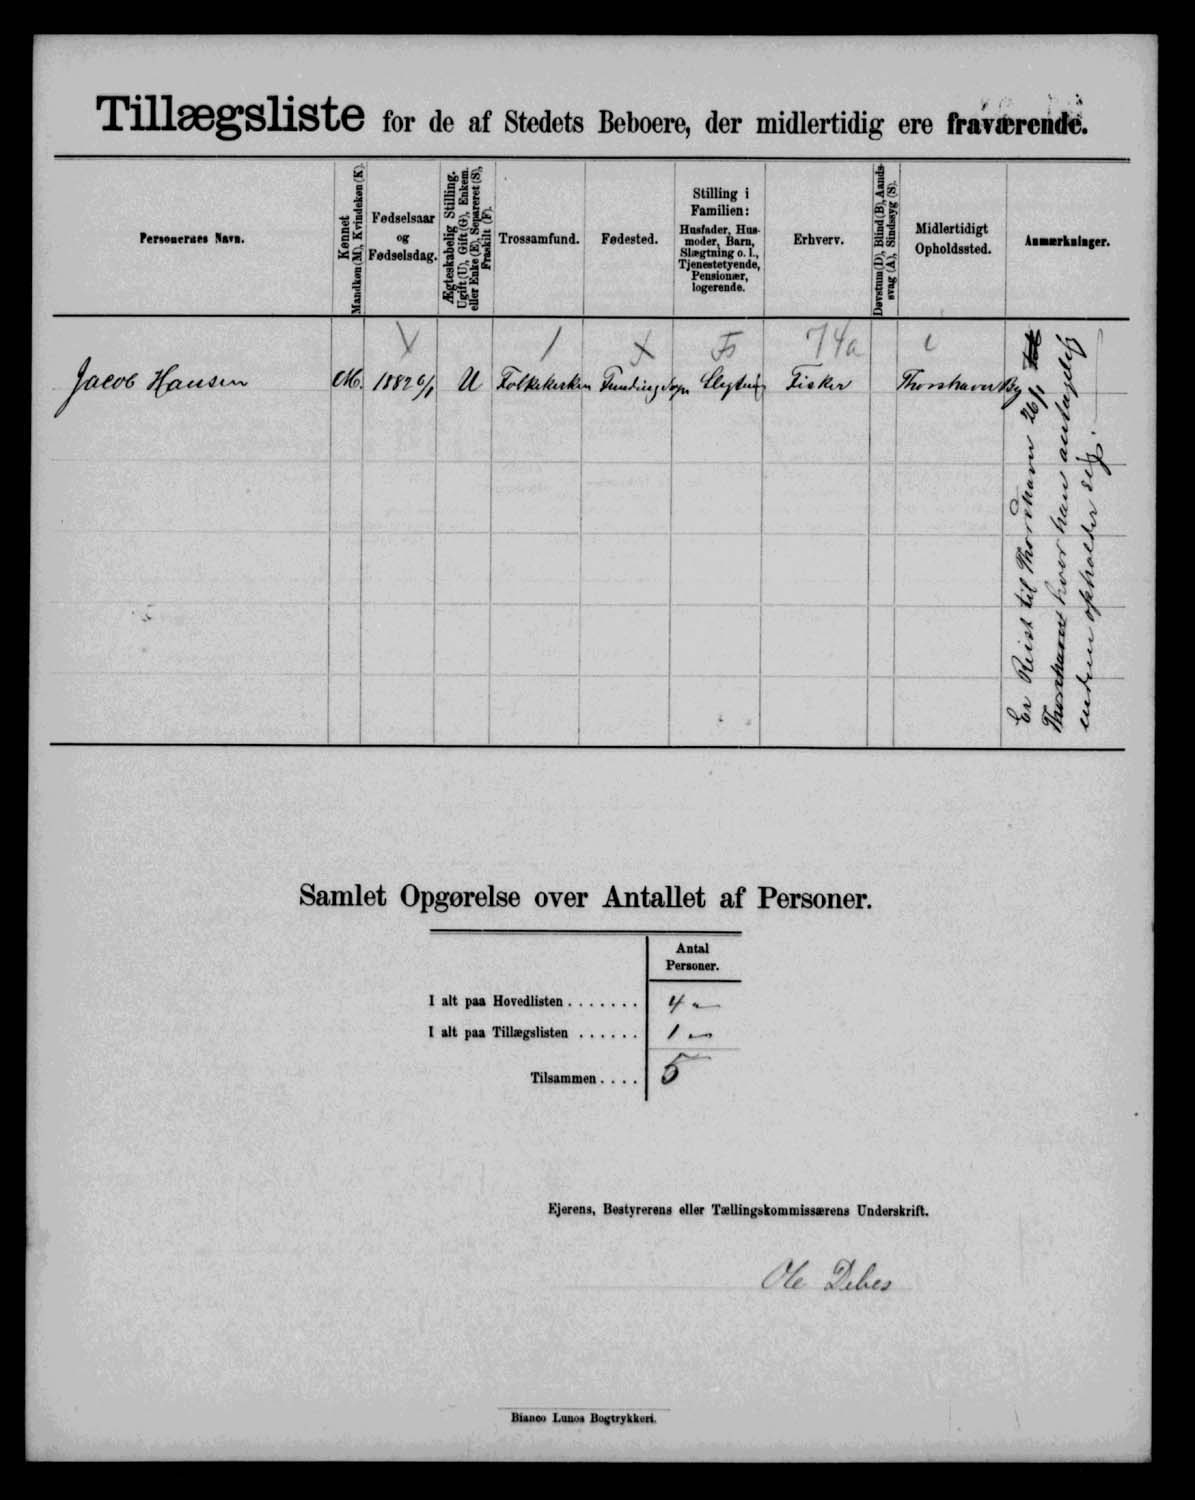 Tillægsliste for de af Stedets Beboere, der midlertidig ere fraværende.
Personernes Navn.
Kønnet
Mandkøn (M), Kvindekøn (K).
Fødselsaar
og
Fødselsdag.
Ægteskabelig Stilling.
Ugift (U), Gift (G), Enkem.
eller Enke (E), Separeret (S),
Fraskilt (F).
Trossamfund.
Fødested.
Stilling i
Familien:
Husfader, Hus-
moder, Barn,
Slægtning o. l.,
Tjenestetyende,
Pensionær,
logerende.
Erhverv.
Døvstum (D), Blind (B), Aands-
svag (A), Sindssyg (S).
Midlertidigt
Opholdssted.
Anmærkninger.
74a
Jacob Hansen M. 1882 6/1 U Folkekirken Fundings sogn Slegtning Fisker Thorshavn By
Er Reist til Thorshavn 26/1
Thorshavn hvor han antagelig
endnu opholder sig.
Samlet Opgørelse over Antallet af Personer.
Antal
Personer.
I alt paa Hovedlisten . . . . . . . 4
I alt paa Tillægslisten . . . . . . 1
Tilsammen . . . . 5
Ejerens, Bestyrerens eller Tællingskommissærens Underskrift.
Ole Debes
Bianco Lunos Bogtrykkeri.